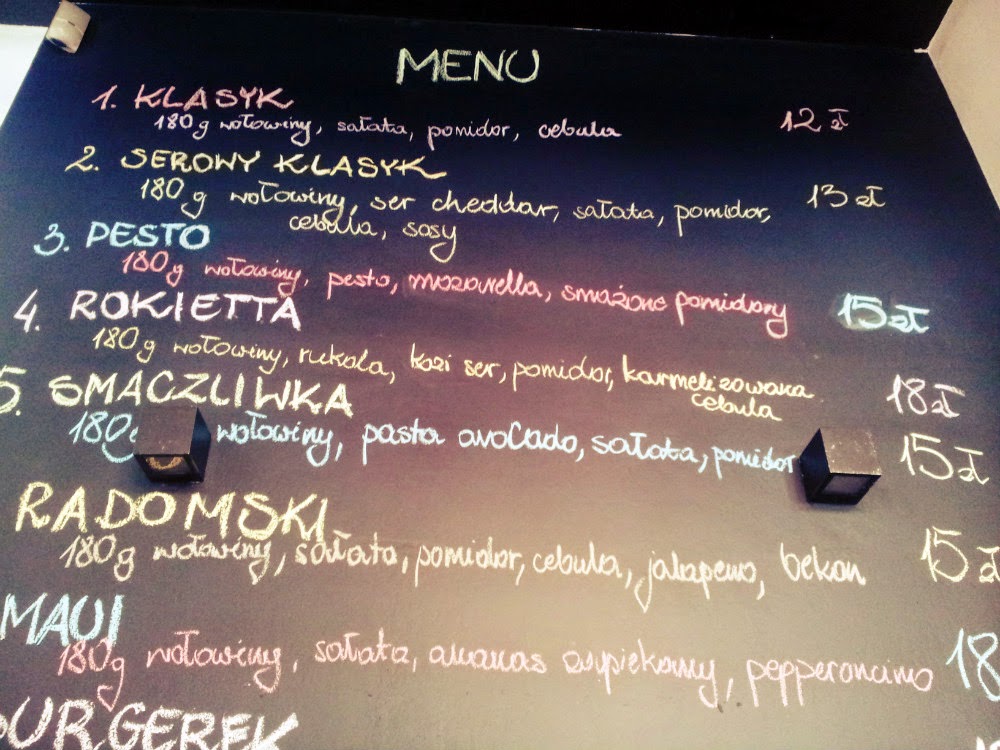 MENU
1. KLASYK
180g wołowiny, sałata, pomidor, cebula 12 zł
2. SEROWY KLASYK
180g wołowiny, ser cheddar, sałata, pomidor, 13 zł
cebula, sosy
3. PESTO
180g wołowiny, pesto, mozarella, smażone pomidory 15 zł
4. ROKIETTA
180g wołowiny, rukola, kozi ser, pomidor, karmelizowana 18 zł
cebula
5. SMACZLIWKA
180g wołowiny, pasta avocado, sałata, pomidor 15 zł
RADOMSKI
180g wołowiny, sałata, pomidor, cebula, jalapeno, bekon 15 zł
MAUI
180g wołowiny, sałata, ananas, pepperoncino 18
BURGEREK